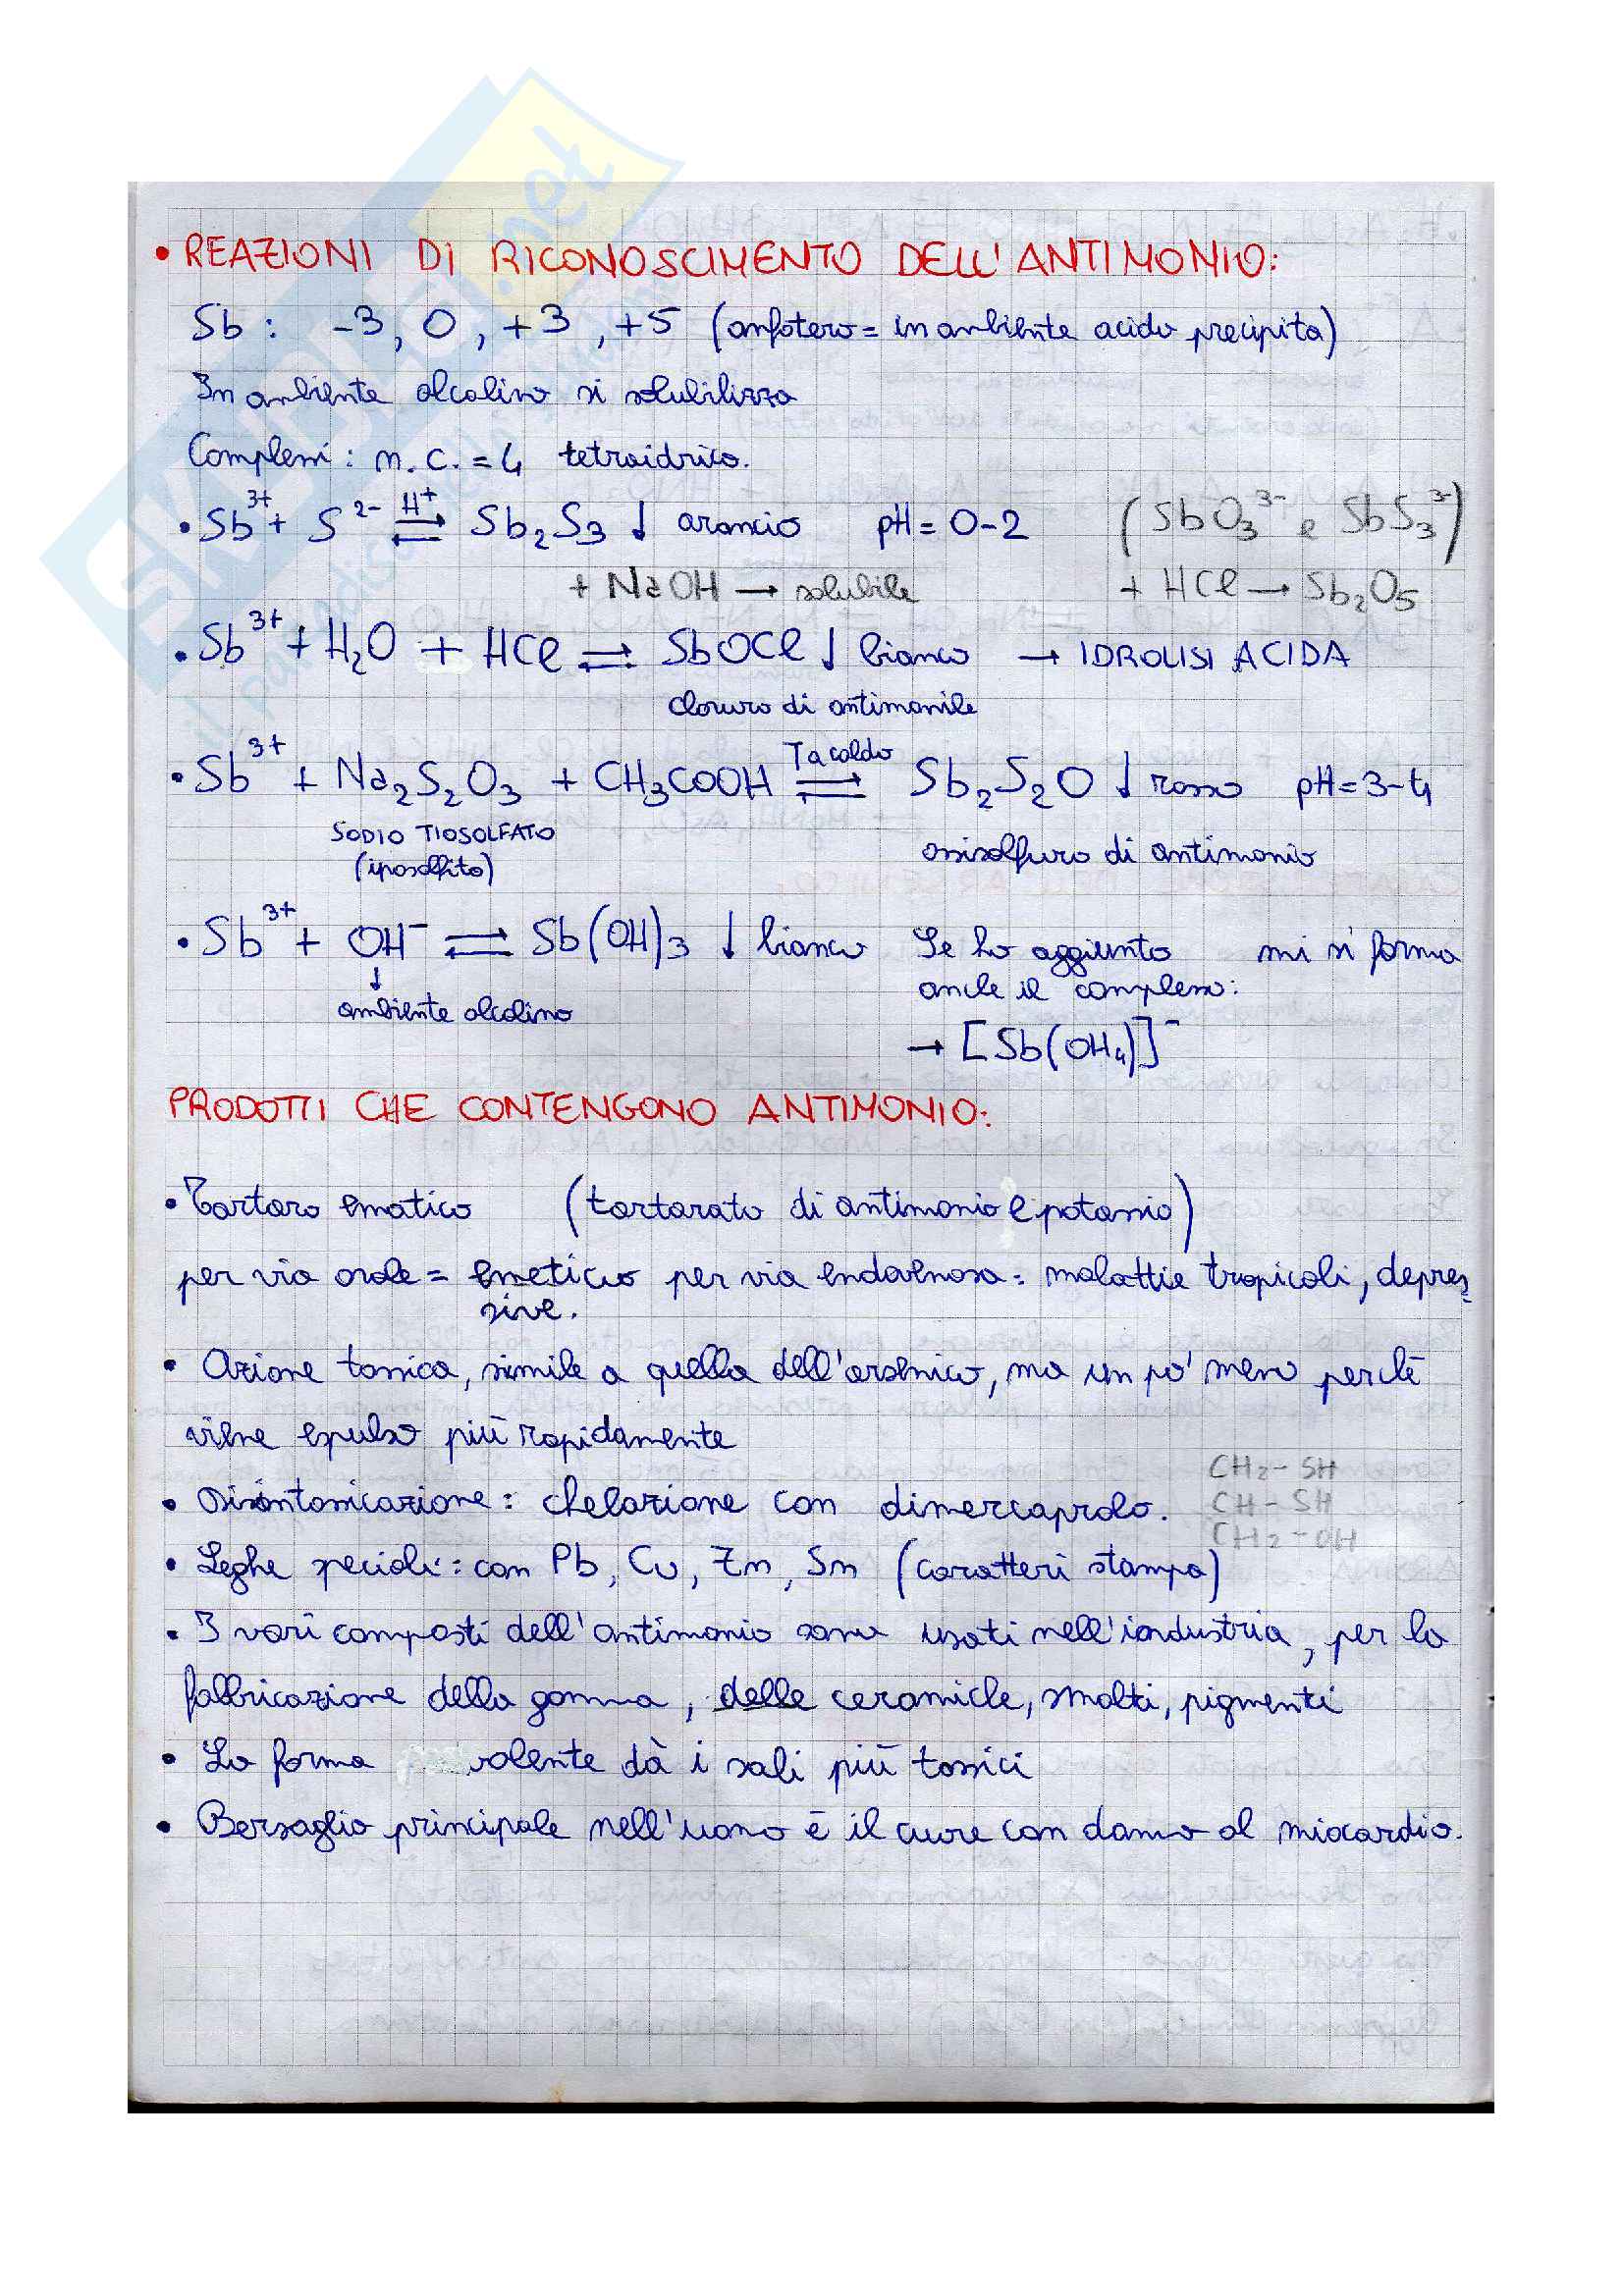 • REAZIONI DI RICONOSCIMENTO DELL'ANTIMONIO:
Sb : -3, 0, +3, +5 (anfotero = in ambiente acido precipita)
In ambiente alcalino si solubilizza
Complessi: n.c. = 4 tetraidrico.
• Sb³⁺ + S²⁻ ⇌ (H⁺) Sb₂S₃ ↓ arancio pH = 0-2 (SbO₃³⁻ e SbS₃³⁻)
+ NaOH → solubile + HCl → Sb₂O₅
• Sb³⁺ + H₂O + HCl ⇌ SbOCl ↓ bianco → IDROLISI ACIDA
cloruro di antimonile
• Sb³⁺ + Na₂S₂O₃ + CH₃COOH ⇌ (T a caldo) Sb₂S₂O ↓ rosso pH = 3-4
SODIO TIOSOLFATO ossisolfuro di antimonio
(iposolfito)
• Sb³⁺ + OH⁻ ⇌ Sb(OH)₃ ↓ bianco Se ho aggiunto mi si forma
↓ anche il complesso:
ambiente alcalino
→ [Sb(OH₄)]⁻
PRODOTTI CHE CONTENGONO ANTIMONIO:
• Tartaro ematico (tartarato di antimonio e potassio)
per via orale = emetico per via endovenosa = malattie tropicali, depres-
sive.
• Azione tossica, simile a quella dell'arsenico, ma un po' meno perchè
viene espulso più rapidamente
• Disintossicazione: chelazione con dimercaprolo. CH₂ - SH
CH - SH
CH₂ - OH
• Leghe speciali: con Pb, Cu, Zn, Sn (caratteri stampa)
• I vari composti dell'antimonio sono usati nell'industria, per la
fabbricazione della gomma, delle ceramiche, smalti, pigmenti
• La forma valente dà i sali più tossici
• Bersaglio principale nell'uomo è il cuore con danno al miocardio.
SKUOLA.net